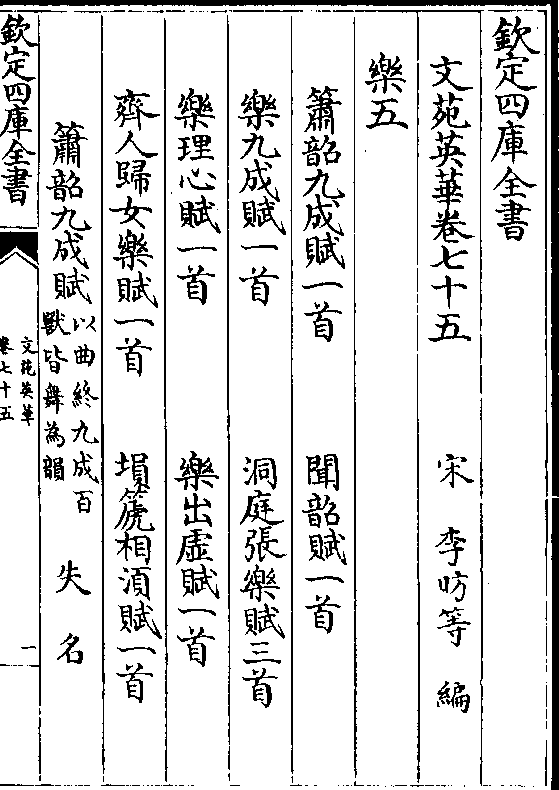 欽定四庫全書
文苑英華卷七十五
宋 李昉等 編
樂五
簫韶九成賦一首 聞韶賦一首
樂九成賦一首 洞庭張樂賦三首
樂理心賦一首 樂出虛賦一首
齊人歸女樂賦一首 塤箎相湏賦一首
簫韶九成賦 以曲終九成百
獸皆舞為韻
失名
欽定四庫全書
文苑英華
卷七十五
一